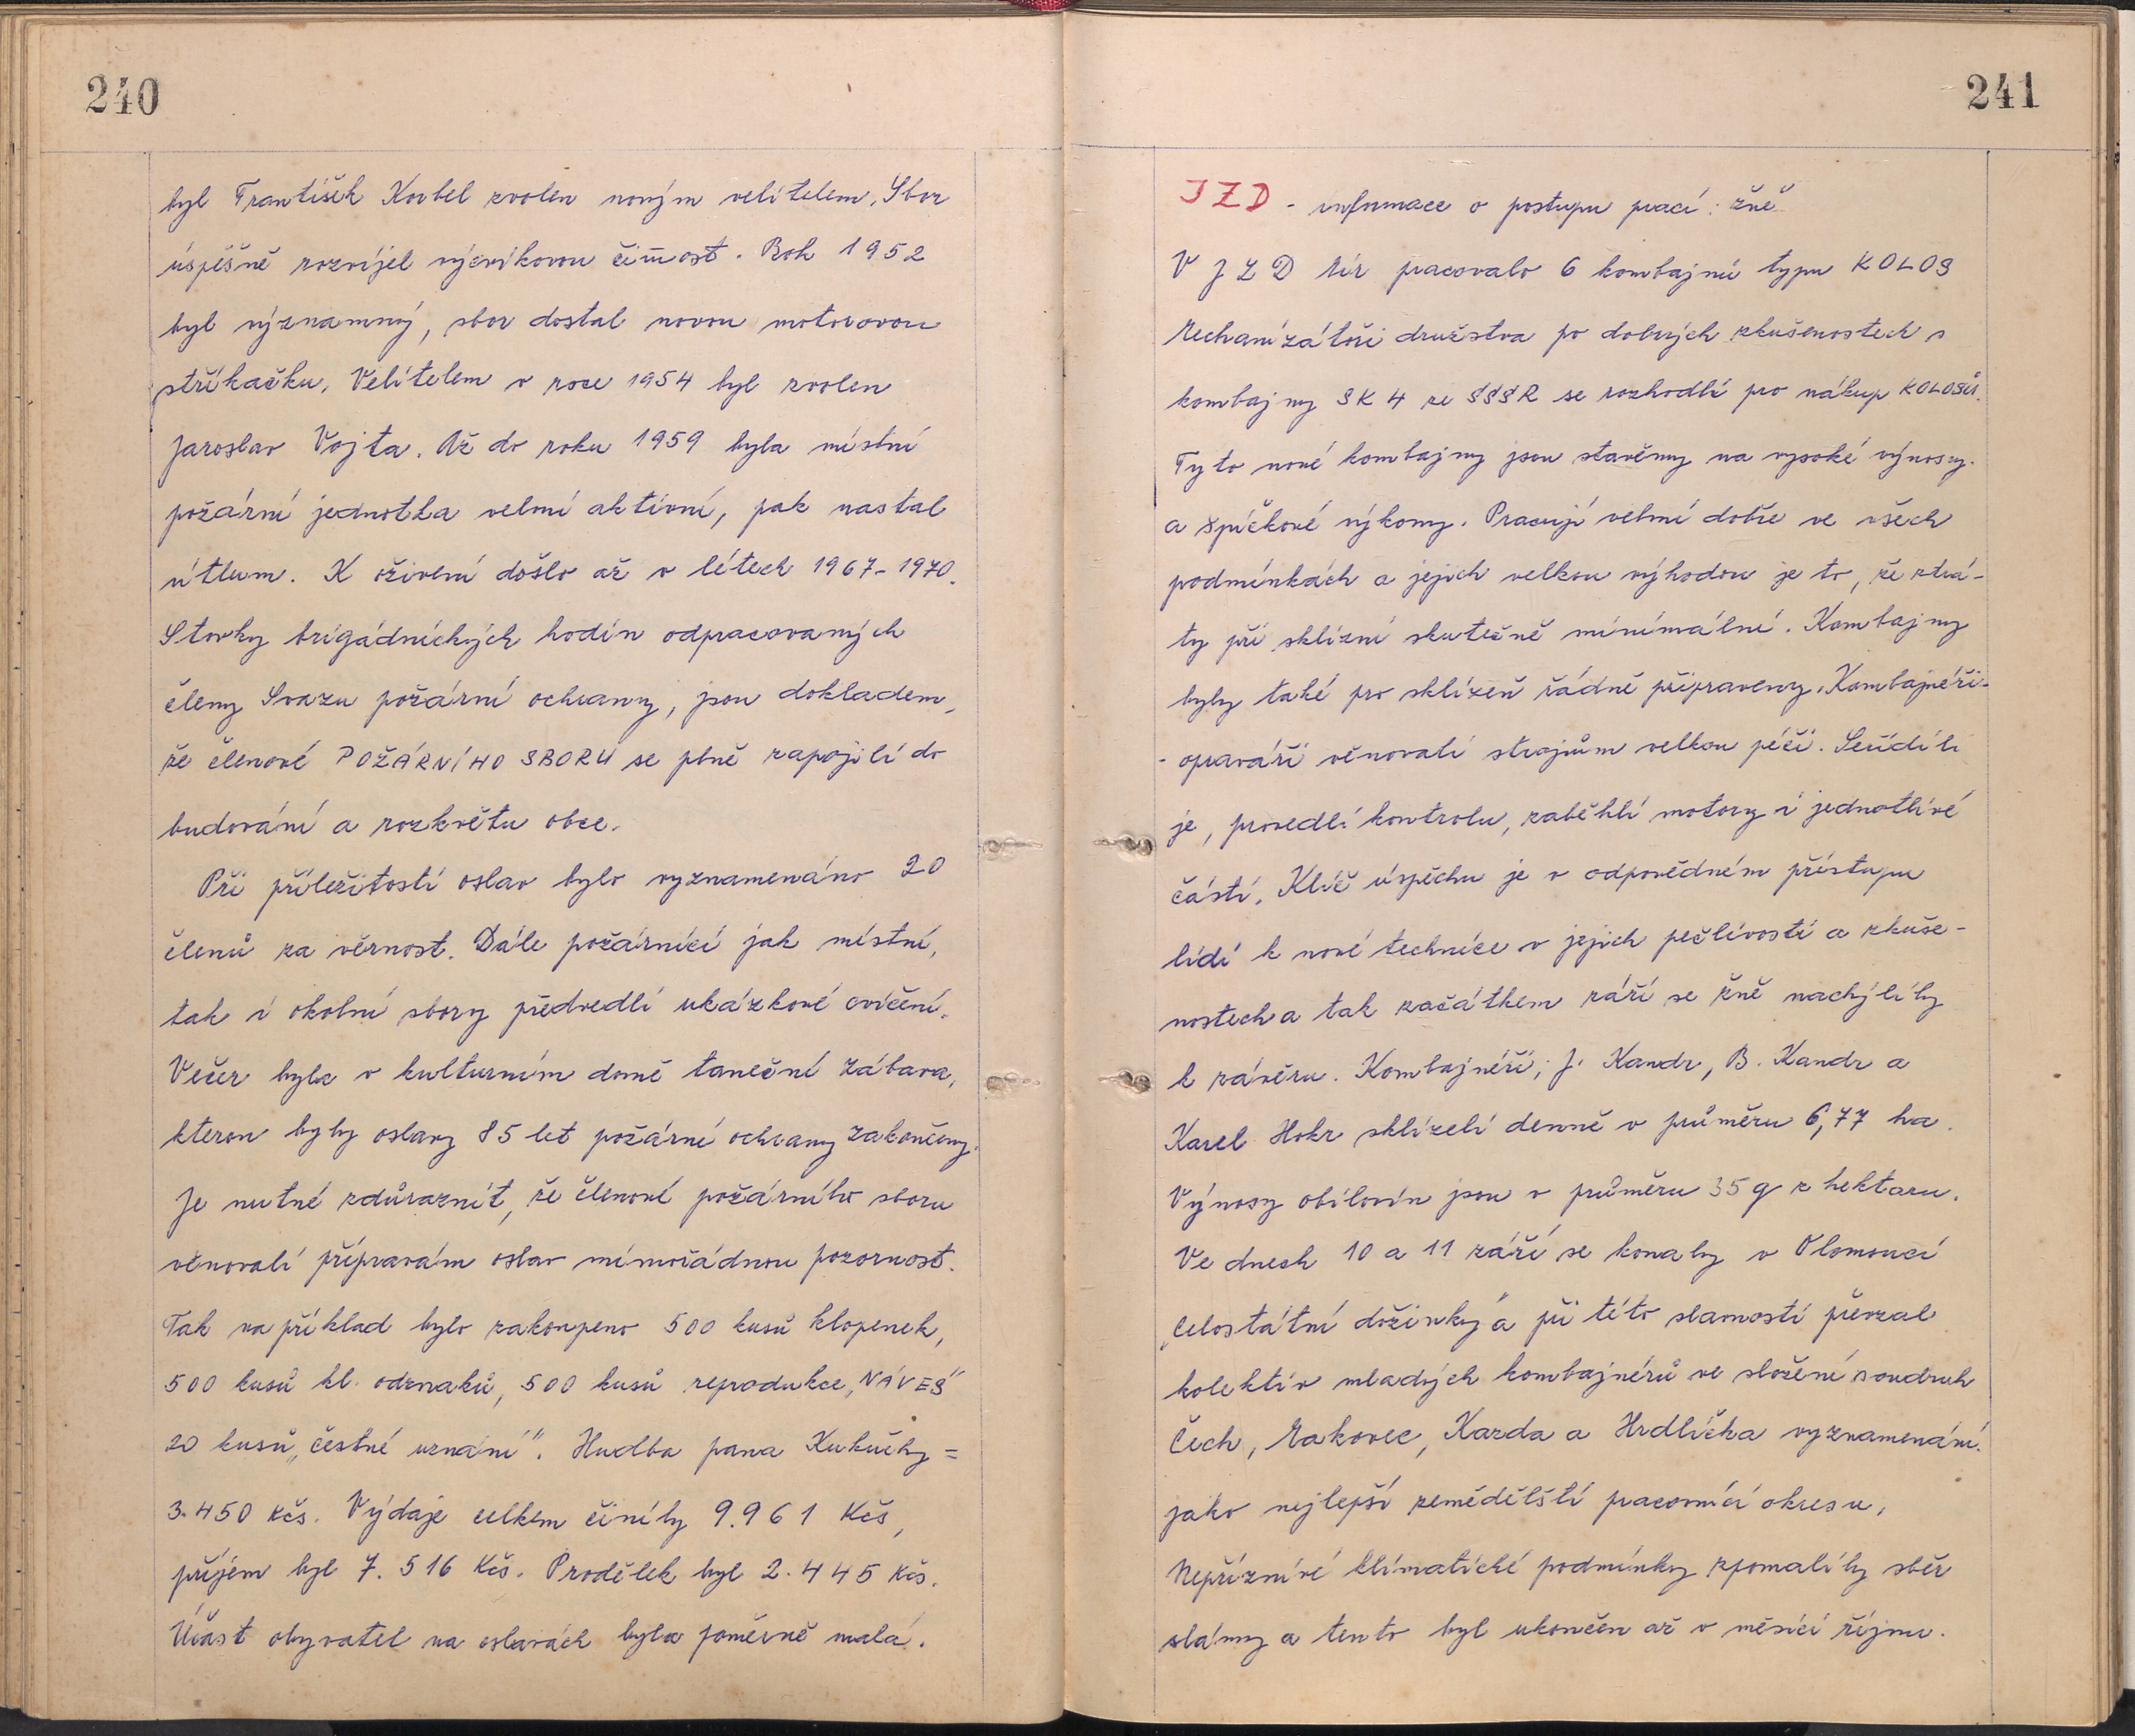 240
byl František Korbel zvolen novým velitelem. Sbor
úspěšně rozvíjel výcvikovou činnost. Rok 1952
byl významný, sbor dostal novou motorovou
stříkačku. Velitelem v roce 1954 byl zvolen
Jaroslav Vojta. Až do roku 1959 byla místní
požární jednotka velmi aktivní, pak nastal
útlum. K oživení došlo až v létech 1967-1970.
Stovky brigádnických hodin odpracovaných
členy Svazu požární ochrany, jsou dokladem,
že členové POŽÁRNÍHO SBORU se plně zapojili do
budování a rozkvětu obce.
Při příležitosti oslav bylo vyznamenáno 20
členů za věrnost. Dále požárníci jak místní,
tak i okolní sbory předvedli ukázkové cvičení.
Večer byla v kulturním domě taneční zábava,
kterou byly oslavy 85 let požární ochrany zakončeny.
Je nutné zdůraznit, že členové požárního sboru
věnovali přípravám oslav mimořádnou pozornost.
Tak na příklad bylo zakoupeno 500 kusů klopenek,
500 kusů kl. odznaků, 500 kusů reprodukce „NÁVES"
20 kusů „čestné uznání". Hudba pana Kukučky =
3.450 Kčs. Výdaje celkem činily 9.961 Kčs,
příjem byl 7.516 Kčs. Prodělek byl 2.445 Kčs.
Účast obyvatel na oslavách byla poměrně malá.
241
JZD - informace o postupu prací: žně
V JZD Mír pracovalo 6 kombajnů typu KOLOS
Mechanizátoři družstva po dobrých zkušenostech s
kombajny SK 4 ze SSSR se rozhodli pro nákup KOLOSŮ.
Tyto nové kombajny jsou stavěny na vysoké výnosy.
a špičkové výkony. Pracují velmi dobře ve všech
podmínkách a jejich velkou výhodou je to, že ztrá-
ty při sklizni skutečně minimální. Kombajny
byly také pro sklizeň řádně připraveny. Kombajnéři-
- opraváři věnovali strojům velkou péči. Seřídili
je, provedli kontrolu, zaběhli motory i jednotlivé
části. Klíč úspěchu je v odpovědném přístupu
lidí k nové technice v jejich pečlivosti a zkuše-
nostech a tak začátkem září se žně nachýlily
k závěru. Kombajnéři; J. Kandr, B. Kandr a
Karel Hokr sklízeli denně v průměru 6,77 ha.
Výnosy obilovin jsou v průměru 35 q z hektaru.
Ve dnech 10 a 11 září se konaly v Olomouci
„Celostátní dožínky" a při této slavnosti převzal
kolektiv mladých kombajnérů ve složení soudruh
Čech, Makovec, Kazda a Hrdlička vyznamenání.
jako nejlepší zemědělští pracovníci okresu.
Nepříznivé klimatické podmínky zpomalily sběr
slámy a tento byl ukončen až v měsíci říjnu.